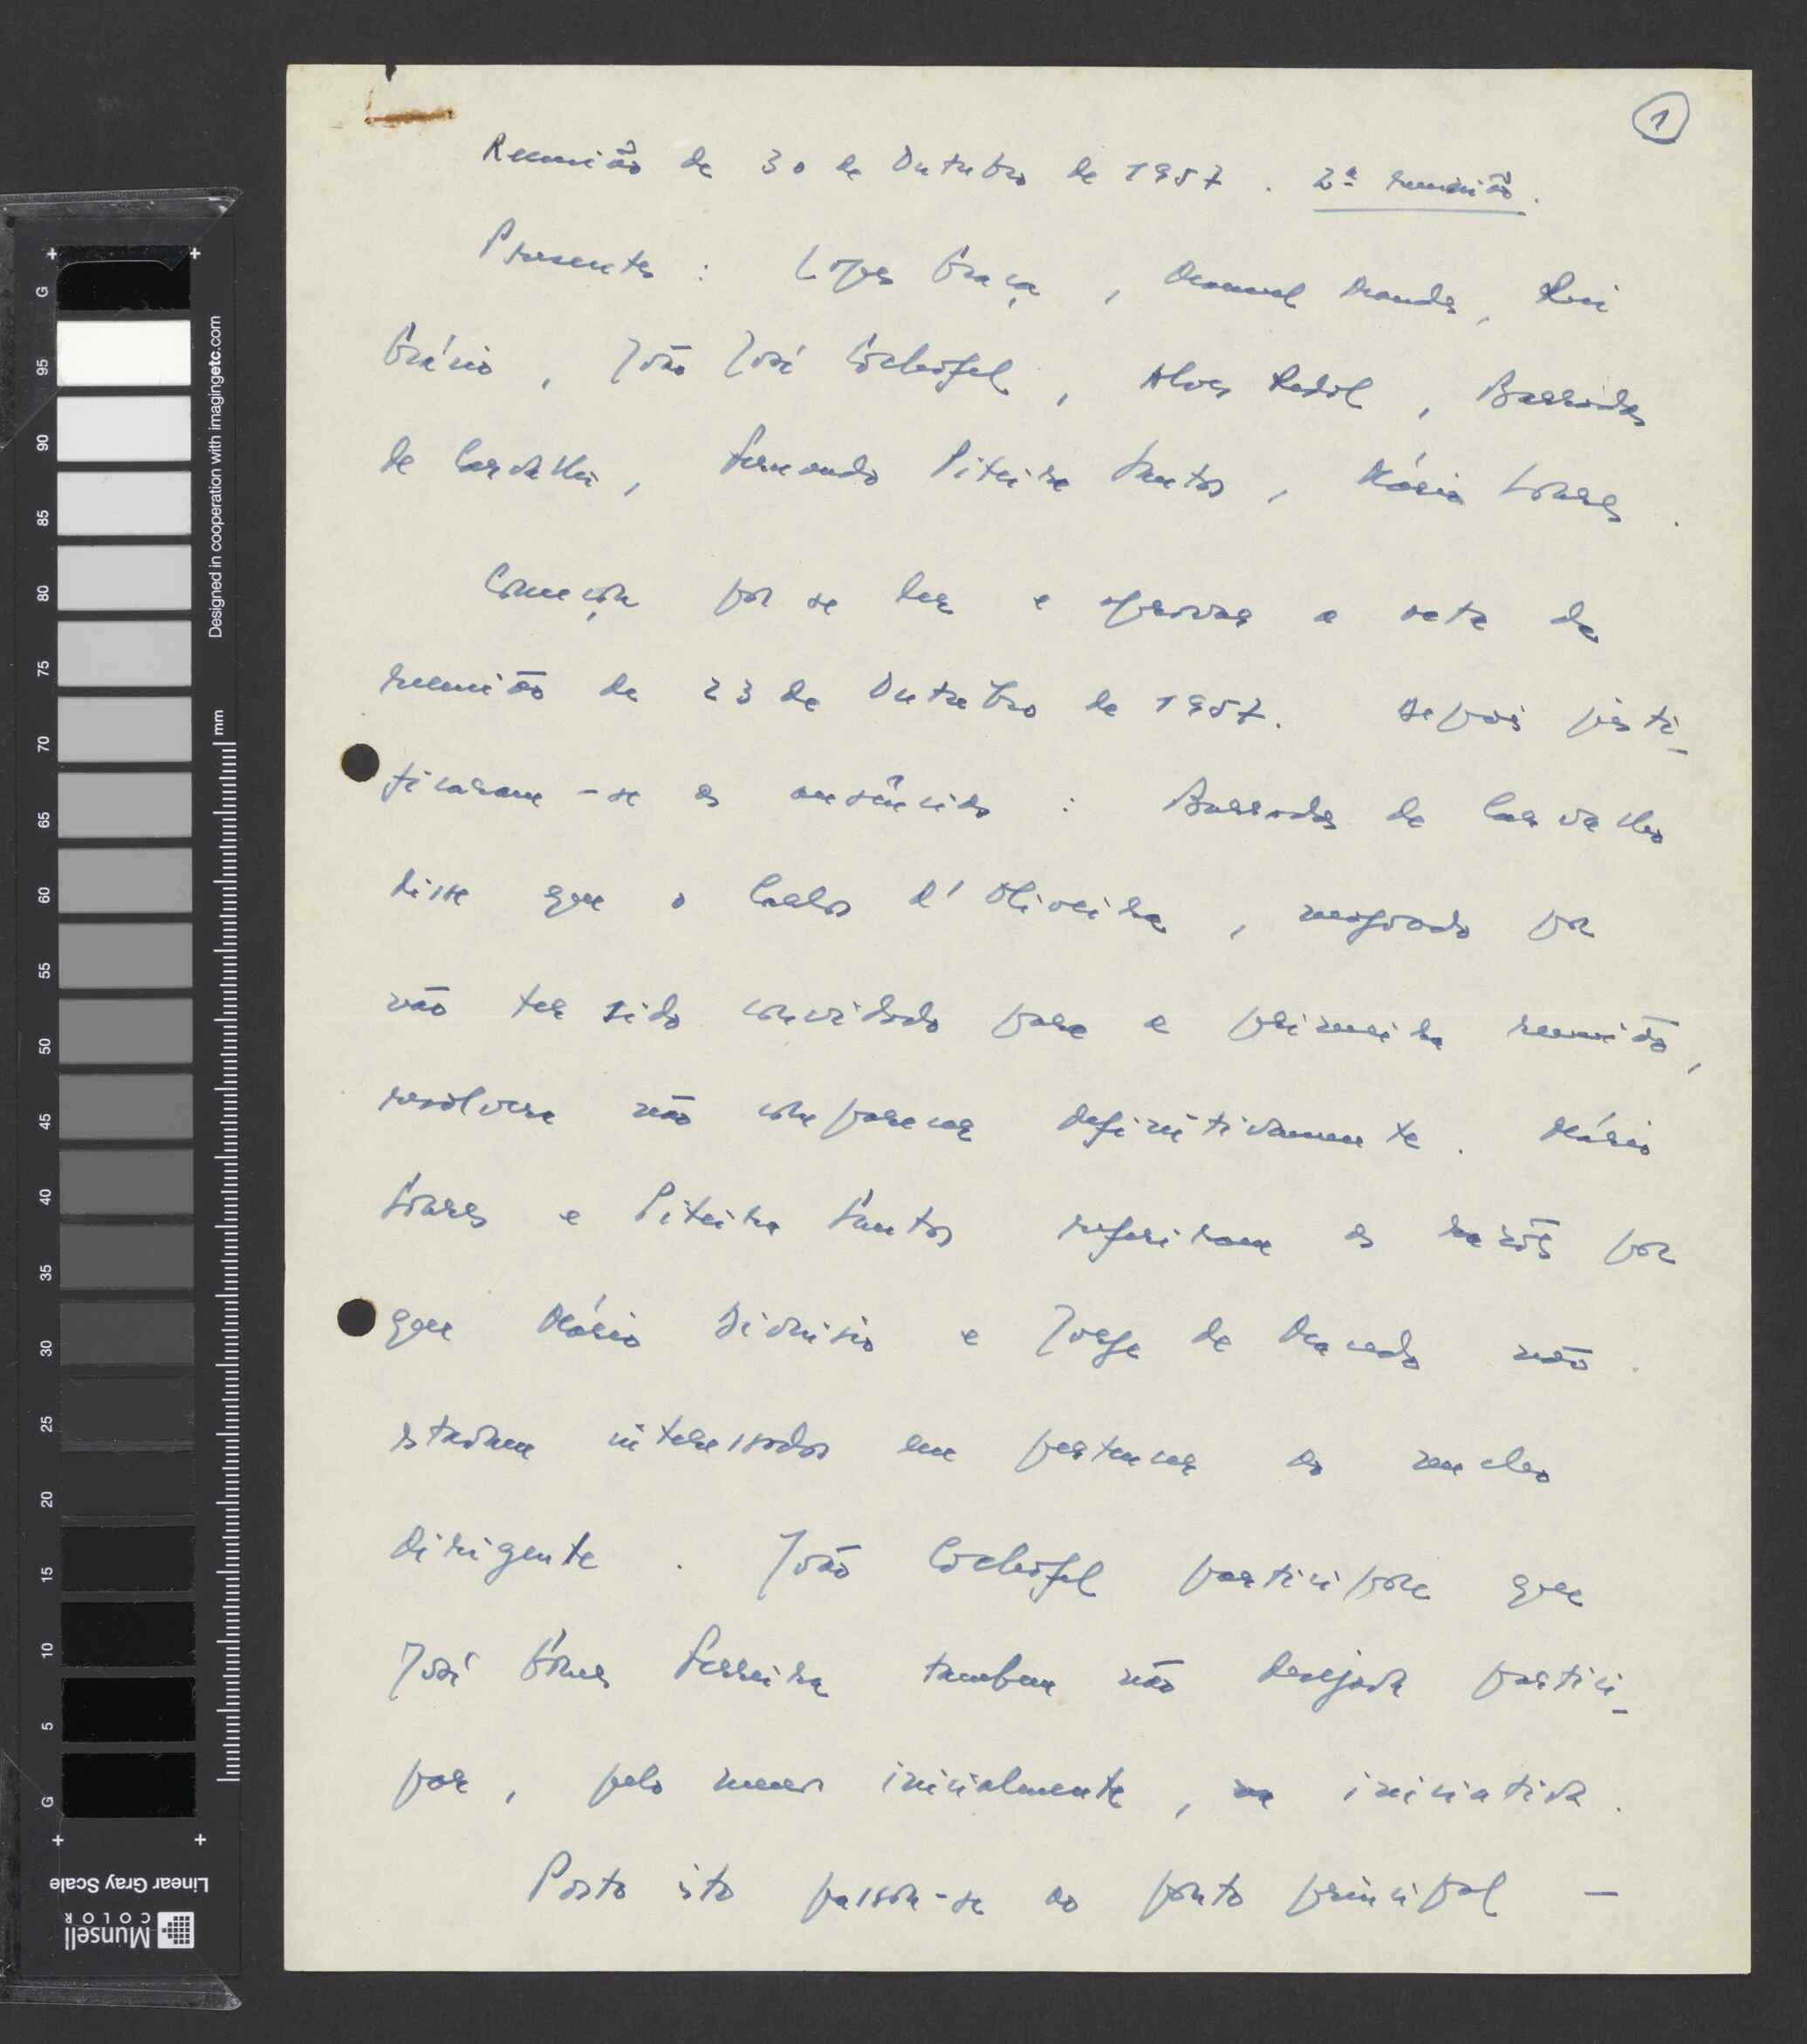 1
Reunião de 30 de Outubro de 1957. 2ª reunião.
Presentes: Lopes Graça, Manuel Mendes, Rui
Grácio, João José Cochofel, Alves Redol, Barradas
de Carvalho, Fernando Piteira Santos, Mário Soares.
Começou por se ler e aprovar a acta da
reunião de 23 de Outubro de 1957. Depois justi-
ficaram-se as ausências: Barradas de Carvalho
disse que o Carlos d'Oliveira, magoado por
não ter sido convidado para a primeira reunião,
resolvera não comparecer definitivamente. Mário
Soares e Piteira Santos referiram as razões por
que Mário Dionísio e Jorge de Macedo não
estavam interessados em pertencer ao nucleo
dirigente. João Cochofel participou que
José Gomes Ferreira tambem não desejava partici-
par, pelo menos inicialmente, na iniciativa.
Posto isto passou-se ao ponto principal —
G
95
90
85
80
75
70
65
60
55
50
45
40
35
30
25
20
15
10
5
G
mm
Designed in cooperation with imagingetc.com
Linear Gray Scale
Munsell
COLOR